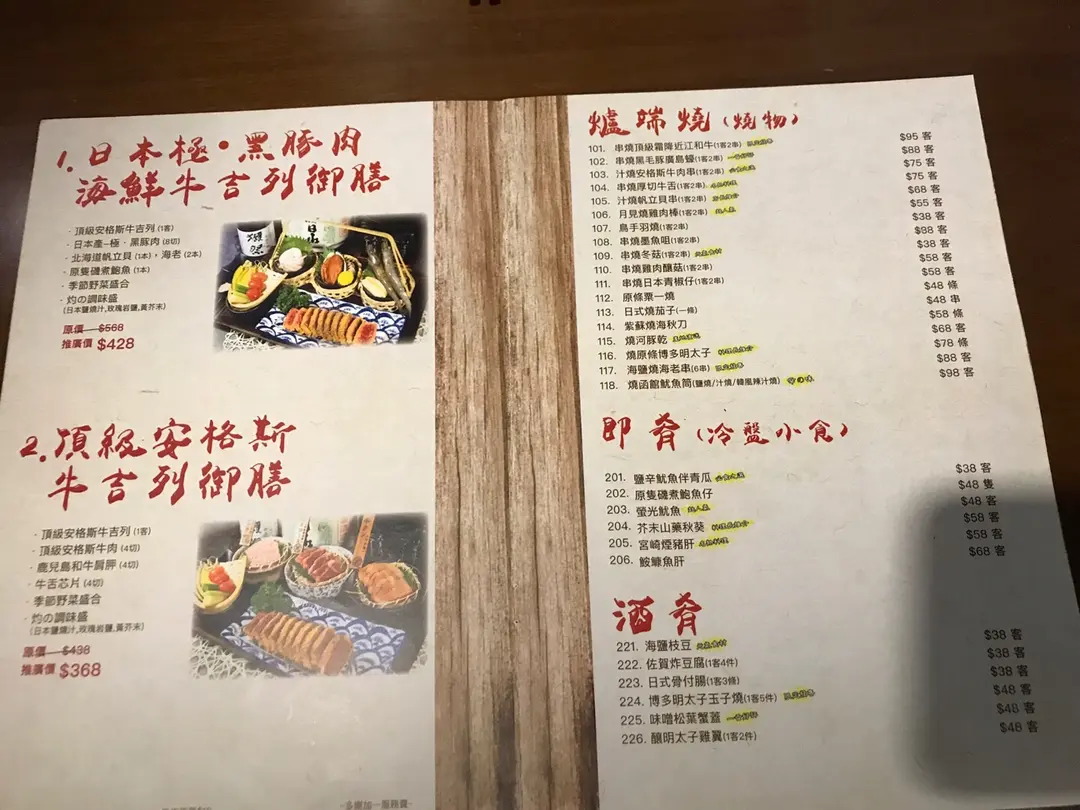 1. 日本極•黑豚肉
海鮮牛吉列御膳
· 頂級安格斯牛吉列 (1客)
· 日本產–極 · 黑豚肉 (8切)
· 北海道帆立貝 (1本), 海老 (2本)
· 原隻磯煮鮑魚 (1本)
· 季節野菜盛合
· 灼の調味盛
(日本鹽燒汁,玫瑰岩鹽,黃芥末)
原價 $568
推廣價 $428
2. 頂級安格斯
牛吉列御膳
· 頂級安格斯牛吉列 (1客)
· 頂級安格斯牛肉 (4切)
· 鹿兒島和牛肩胛 (4切)
· 牛舌芯片 (4切)
· 季節野菜盛合
· 灼の調味盛
(日本鹽燒汁,玫瑰岩鹽,黃芥末)
原價 $438
推廣價 $368
-多樂加一服務費-
爐端燒 (燒物)
101. 串燒頂級霜降近江和牛(1客2串) $95 客
102. 串燒黑毛豚廣島蠔(1客2串) $88 客
103. 汁燒安格斯牛肉串(1客2串) $75 客
104. 串燒厚切牛舌(1客2串) $75 客
105. 汁燒帆立貝串(1客2串) $68 客
106. 月見燒雞肉棒(1客2串) $55 客
107. 鳥手羽燒(1客2串) $38 客
108. 串燒墨魚咀(1客2串) $88 客
109. 串燒冬菇(1客2串) $38 客
110. 串燒雞肉釀菇(1客2串) $58 客
111. 串燒日本青椒仔(1客2串) $58 客
112. 原條粟一燒 $48 條
113. 日式燒茄子(一條) $48 串
114. 紫蘇燒海秋刀 $58 條
115. 燒河豚乾 $68 客
116. 燒原條博多明太子 $78 條
117. 海鹽燒海老串(6串) $88 客
118. 燒函館魷魚筒(鹽燒/汁燒/韓風辣汁燒) $98 客
即肴 (冷盤小食)
201. 鹽辛魷魚伴青瓜 $38 客
202. 原隻磯煮鮑魚仔 $48 隻
203. 螢光魷魚 $48 客
204. 芥末山藥秋葵 $58 客
205. 宮崎煙豬肝 $58 客
206. 鮟鱇魚肝 $68 客
酒肴
221. 海鹽枝豆 $38 客
222. 佐賀炸豆腐(1客4件) $38 客
223. 日式骨付腸(1客3條) $38 客
224. 博多明太子玉子燒(1客5件) $48 客
225. 味噌松葉蟹蓋 $48 客
226. 釀明太子雞翼(1客2件) $48 客